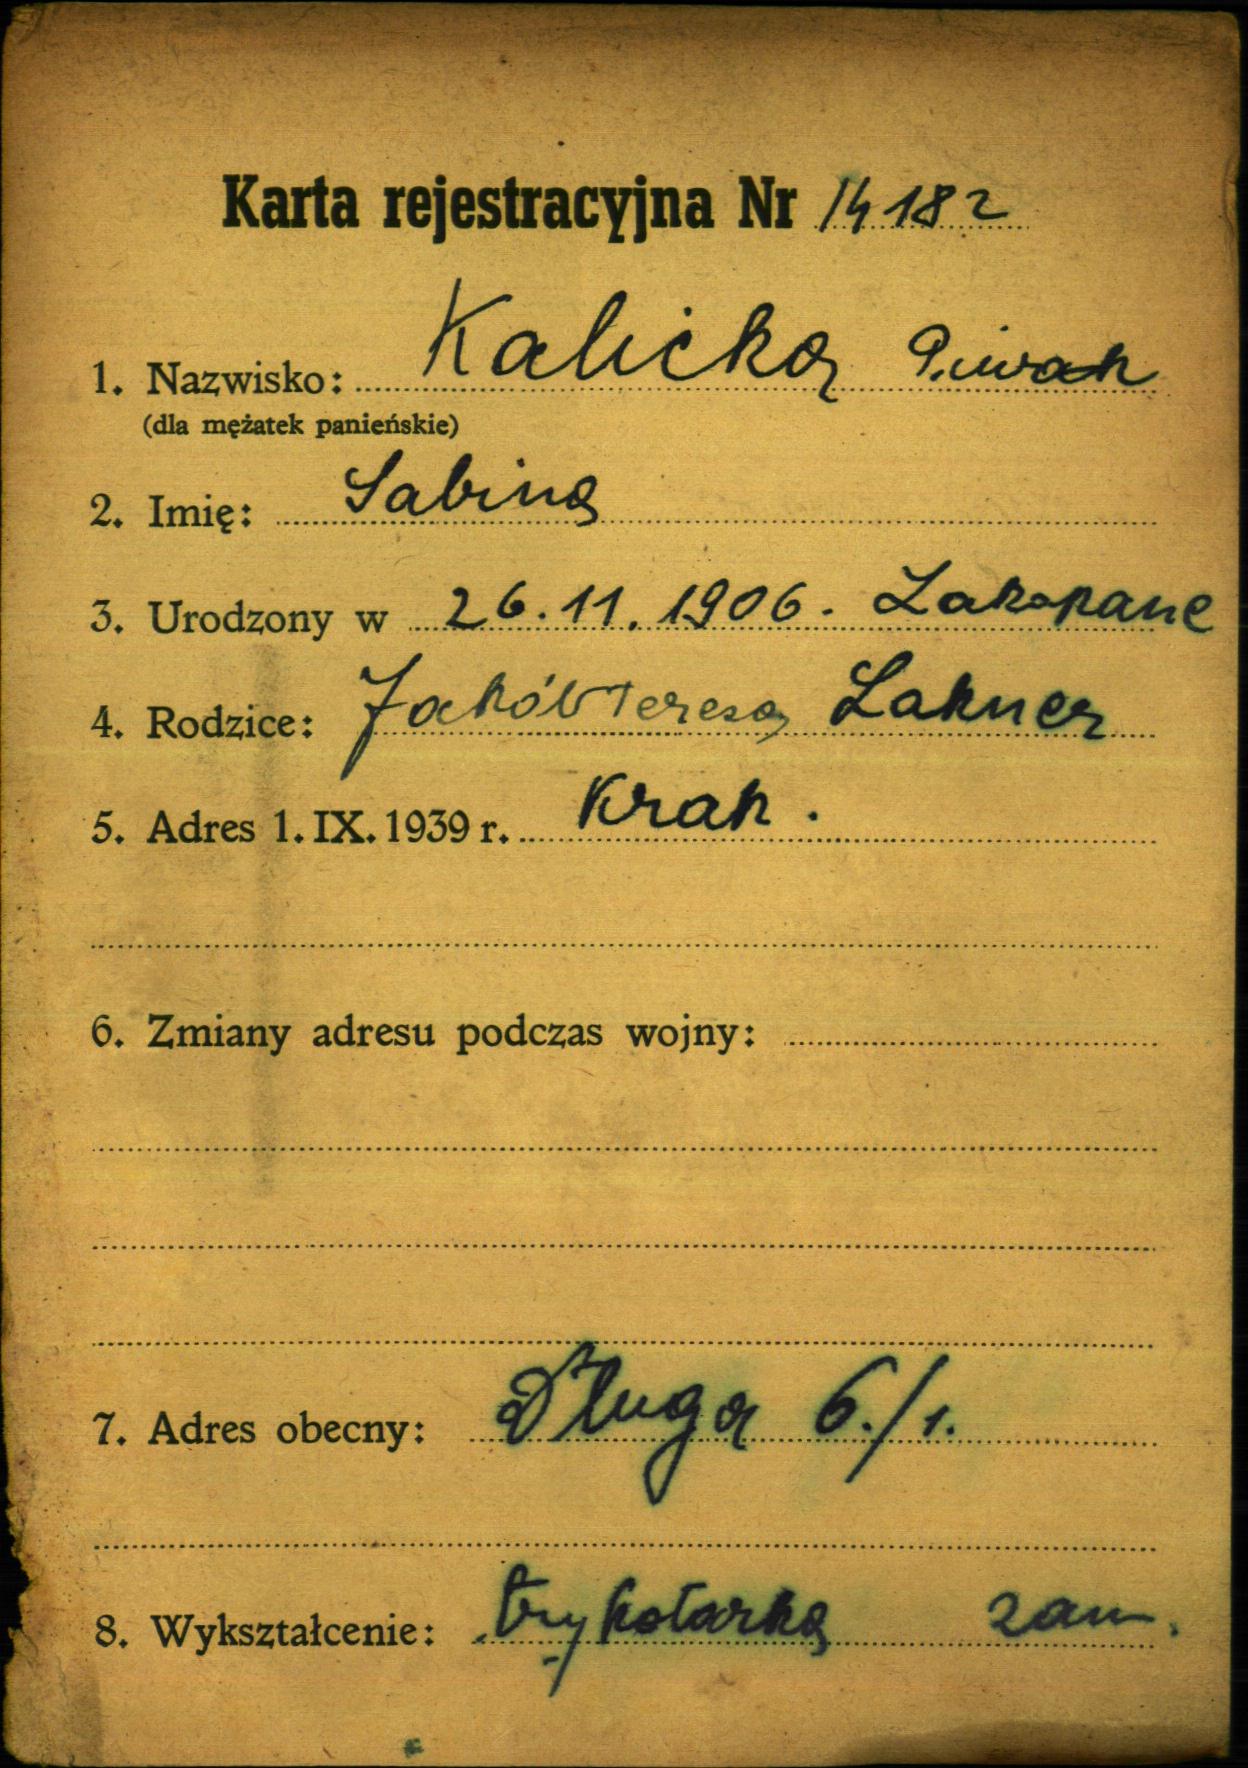 Karta rejestracyjna Nr 14182
1. Nazwisko: Kalicka Piwak
(dla mężatek panieńskie)
2. Imię: Sabina
3. Urodzony w 26.11.1906. Zakopane
4. Rodzice: Jakób Teresa Lakner
5. Adres 1. IX. 1939 r. Krak.
6. Zmiany adresu podczas wojny:
7. Adres obecny: Długa 6./1.
8. Wykształcenie: trykotarka zam.